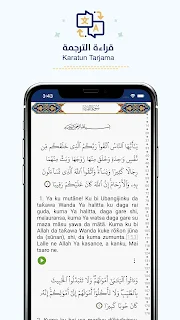 قراءة الترجمة
Karatun Tarjama
3:43
يَا أَيُّهَا النَّاسُ اتَّقُوا رَبَّكُمُ الَّذِي خَلَقَكُم مِّن
نَّفْسٍ وَاحِدَةٍ وَخَلَقَ مِنْهَا زَوْجَهَا وَبَثَّ مِنْهُمَا
رِجَالًا كَثِيرًا وَنِسَاءً وَاتَّقُوا اللَّهَ الَّذِي تَسَاءَلُونَ
بِهِ وَالْأَرْحَامَ إِنَّ اللَّهَ كَانَ عَلَيْكُمْ رَقِيبًا ١
1. Ya ku mutãne! Ku bi Ubangijinku da
taƙawa Wanda Ya halitta ku daga rai
guda, kuma Ya halitta, daga gare shi,
ma'auransa, kuma Ya watsa daga gare su
maza mãsu yawa da mãtã. Kuma ku bi
Allah da taƙawa Wanda kuke rõƙon jũna
da (sũnan), shi, da kuma zumunta
Lalle ne Allah Ya kasance, a kanku, Mai
tsaro.
وَآتُوا الْيَتَامَىٰ أَمْوَالَهُمْ وَلَا تَتَبَدَّلُوا الْخَبِيثَ
بِالطَّيِّبِ وَلَا تَأْكُلُوا أَمْوَالَهُمْ إِلَىٰ أَمْوَالِكُمْ
إِنَّهُ كَانَ حُوبًا كَبِيرًا